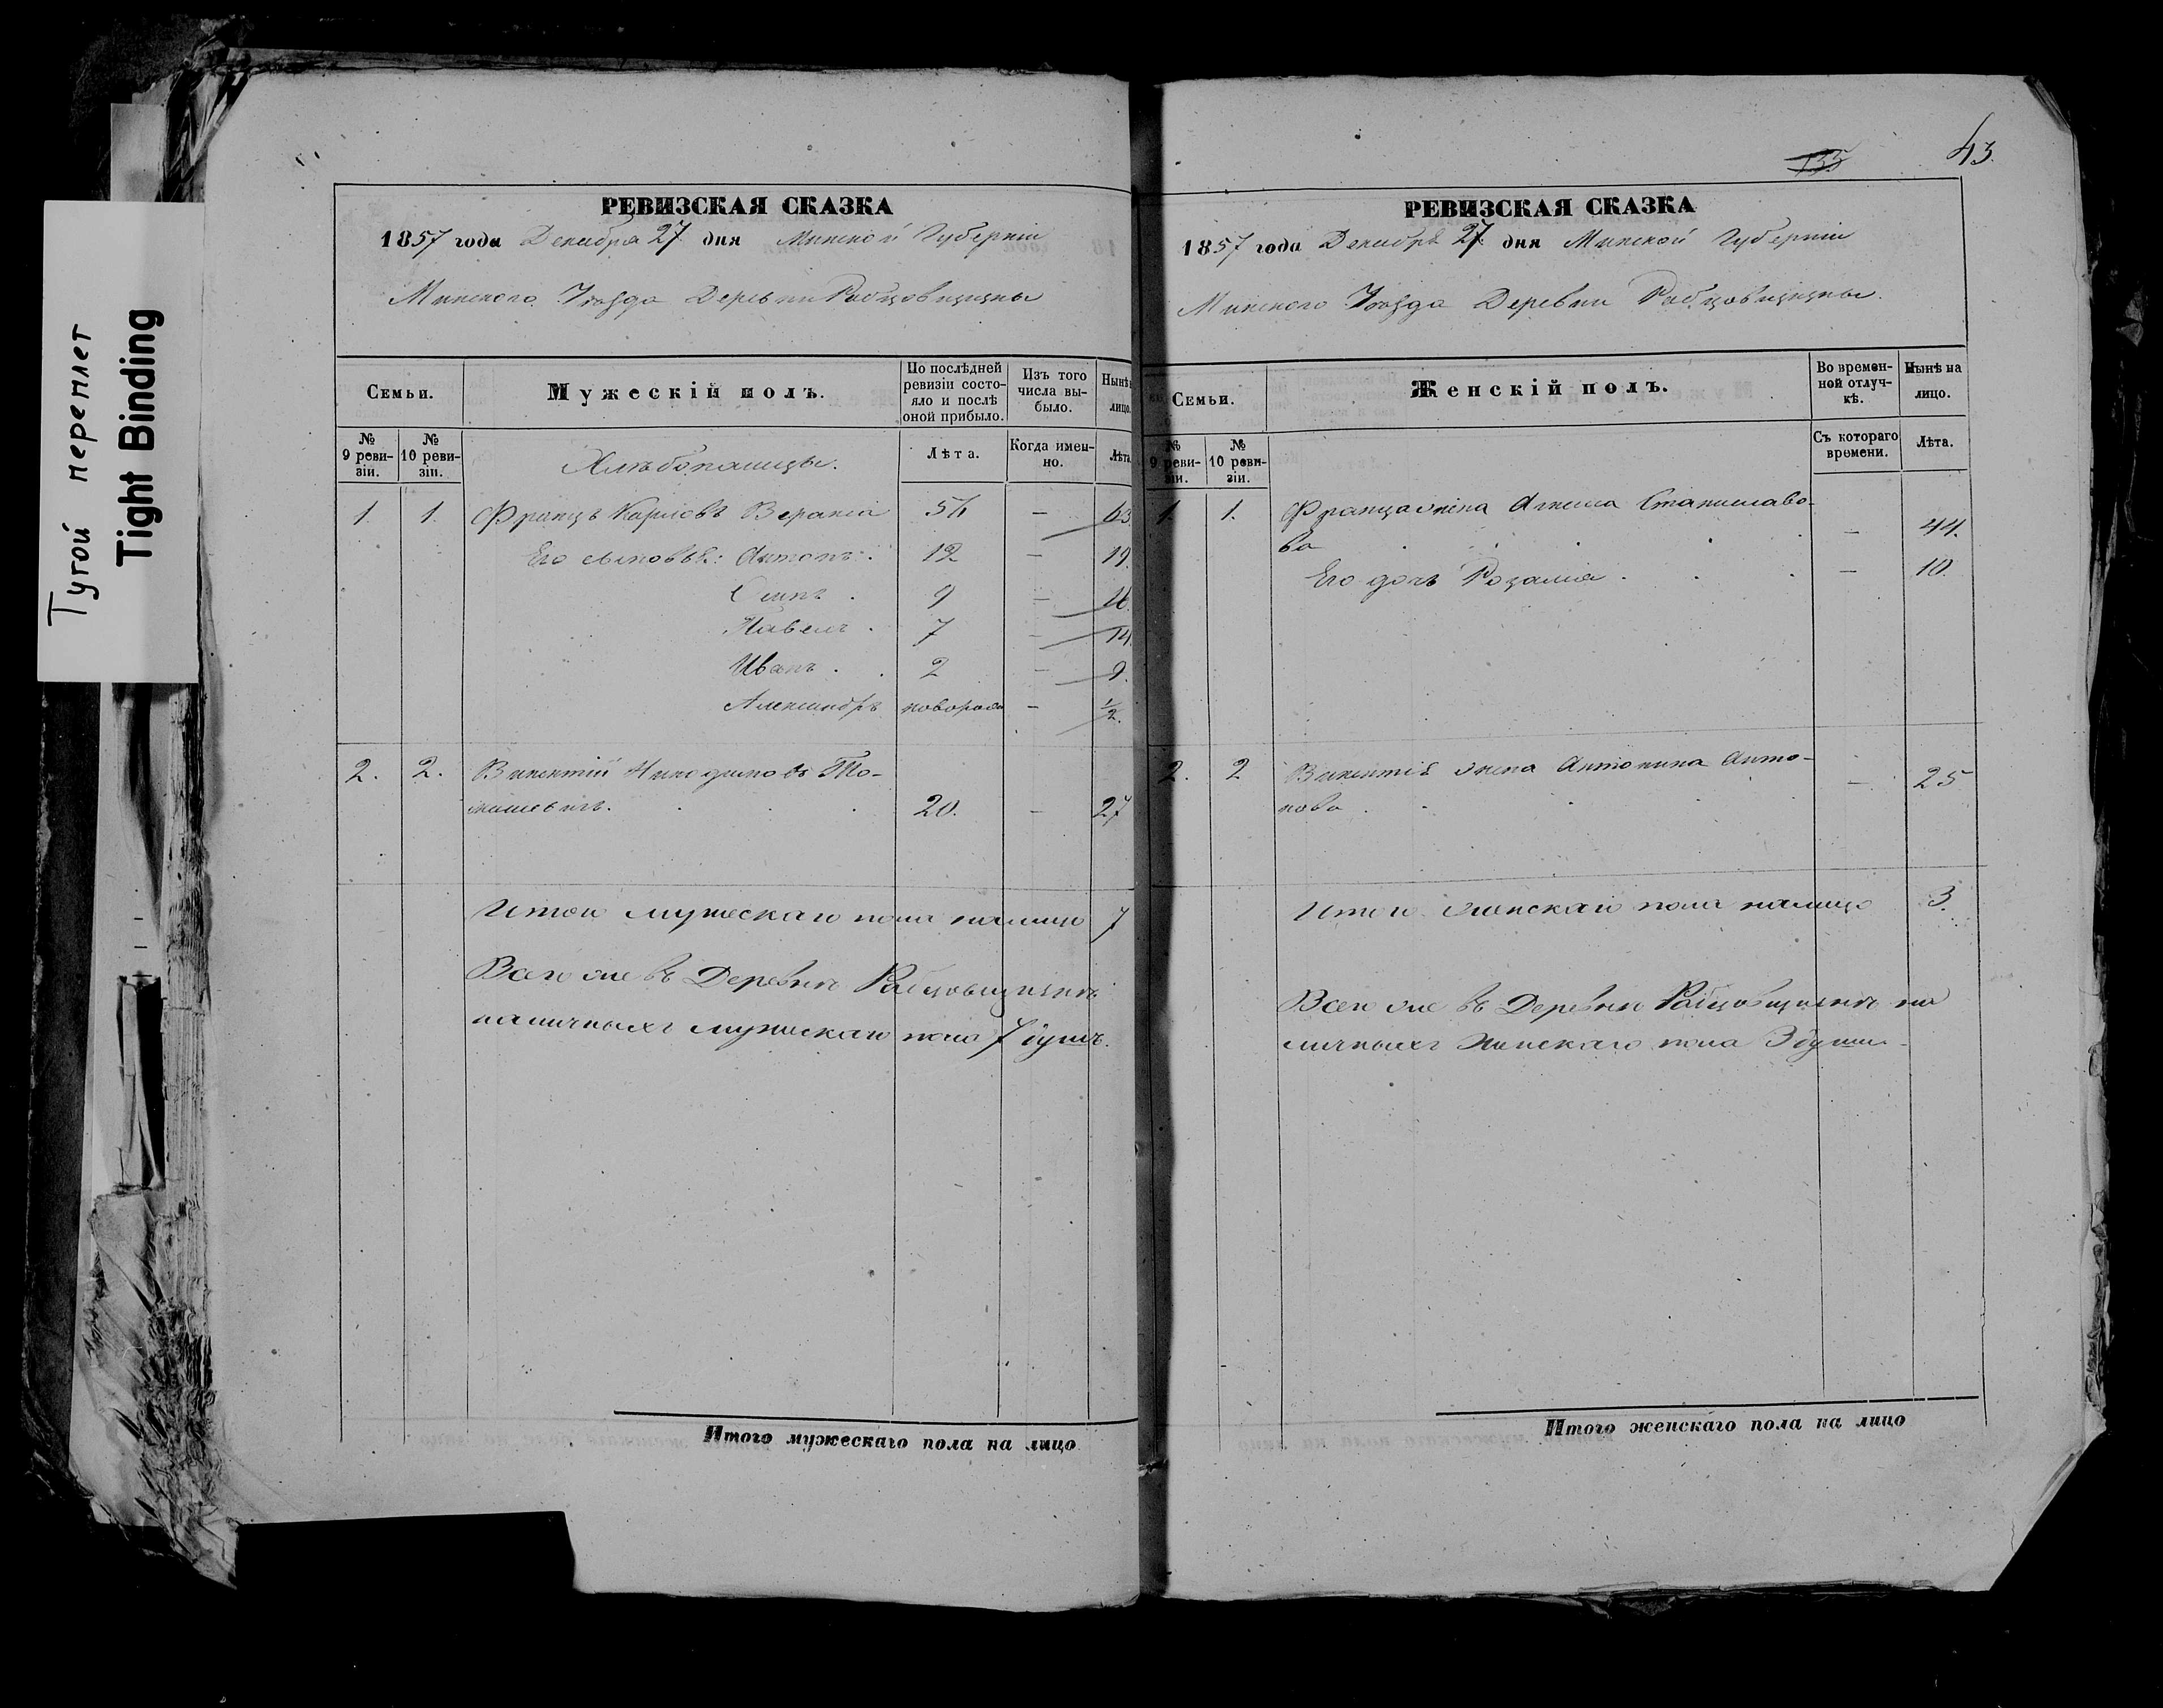 Тугой переплет
Tight Binding
РЕВИЗСКАЯ СКАЗКА
1857 года Декабря 27 дня Минской Губерніи
Минскаго Уѣзда Деревни Рабцовщизны
Семьи.
Мужескій полъ.
По послѣдней ревизіи состояло и послѣ оной прибыло.
Изъ того числа выбыло.
Нынѣ на лицо.
№ 9 ревизіи.
№ 10 ревизіи.
Хлѣбопашцы.
Лѣта.
Когда именно.
Лѣта.
1. 1. Францъ Карловъ 56 — 63
Его сыновья: Антонъ. 12 — 19.
Осипъ . 9 — 16.
Павелъ . 7 — 14.
Иванъ . 2 — 9.
Александръ новорож — 1/2.
2. 2. Викентій Никодимовъ То-
машевичъ. 20. — 27
Итого мужескаго пола налицо 7
Всего же въ Деревнѣ Рабцовщизнѣ
наличныхъ мужескаго пола 7 душъ.
133 43.
РЕВИЗСКАЯ СКАЗКА
1857 года Декабря 27 дня Минской Губерніи
Минскаго Уѣзда Деревни Рабцовщизны.
Семьи.
Женскій полъ.
Во временной отлучкѣ.
Нынѣ на лицо.
№ 9 ревизіи.
№ 10 ревизіи.
Съ котораго времени.
Лѣта.
1. 1. Франца жена Станиславо-
ва — 44.
Его дочь Розалія — 10.
2. 2 Викентія жена Антонина Анто-
нова — 25
Итого женскаго пола налицо 3.
Всего же въ Деревни Рабцовщизнѣ на
личныхъ женскаго пола 3 души.
Итого мужескаго пола на лицо
Итого женскаго пола на лицо